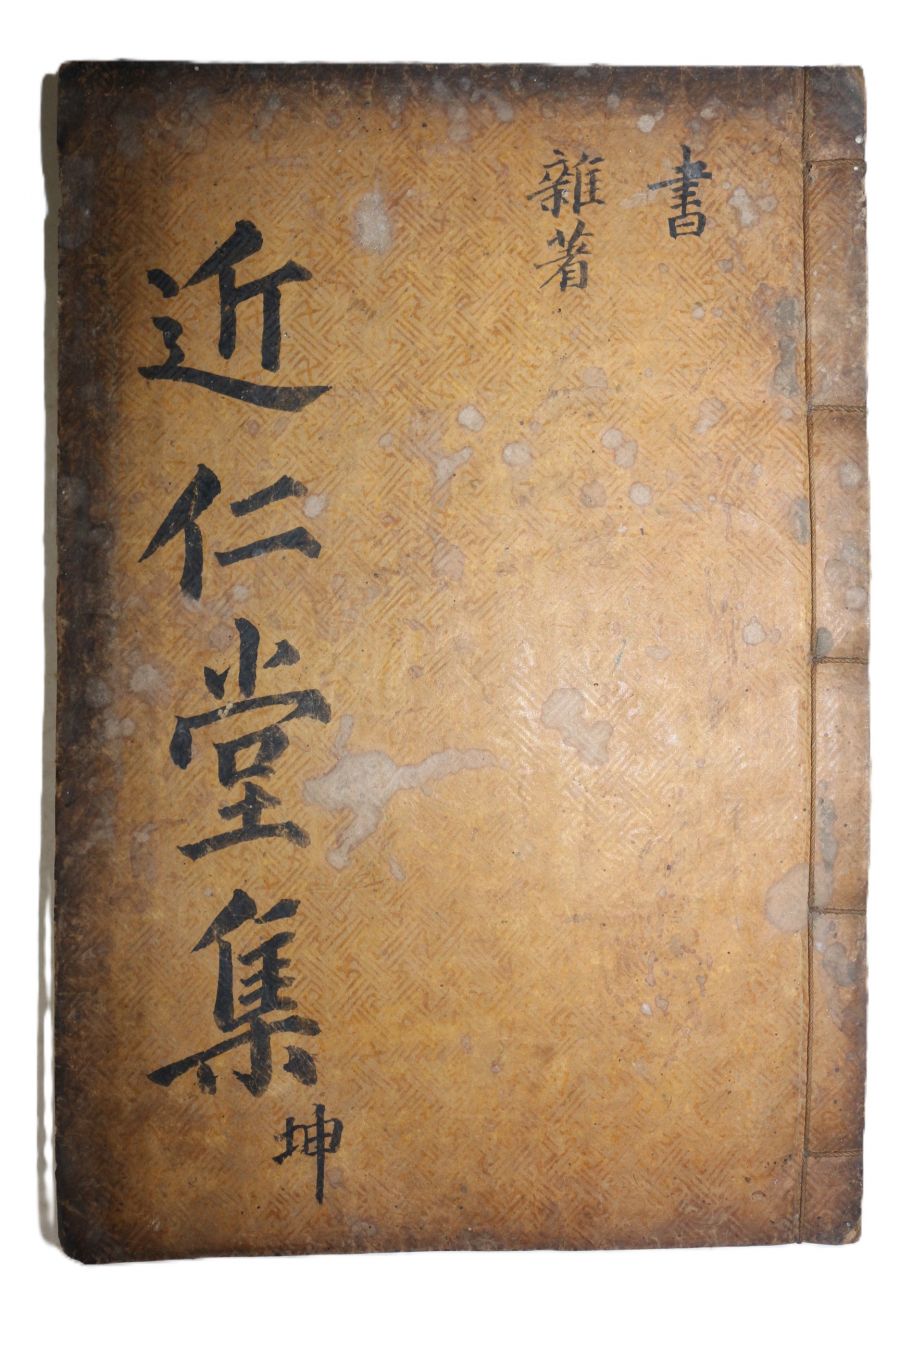 書
雜著
近仁堂集 坤